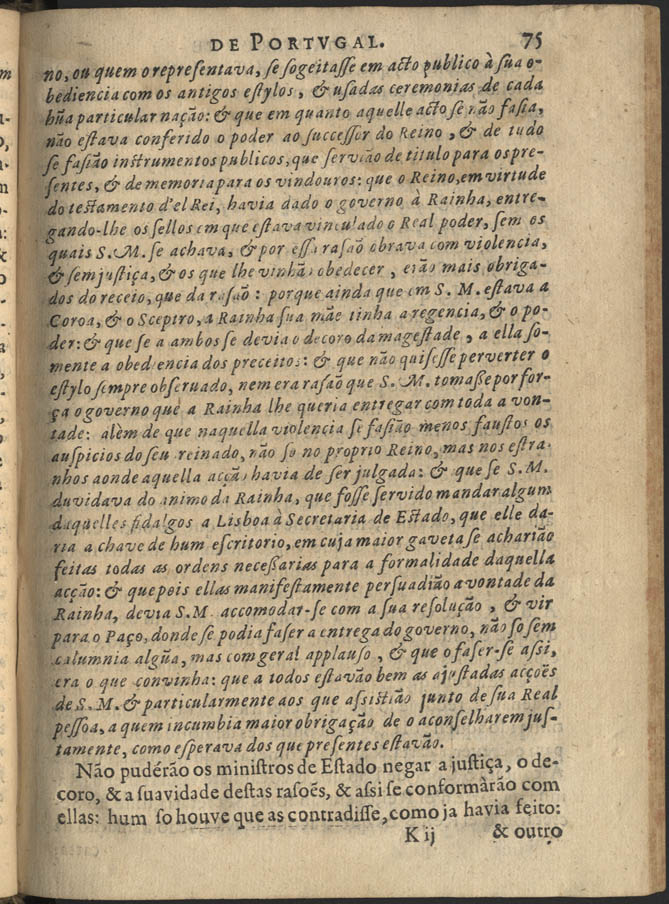 DE PORTVGAL. 75
no, ou quem o representava, se sogeitasse em acto publico à sua o-
bediencia com os antigos estylos, & usadas ceremonias de cada
hũa particular nação: & que em quanto aquelle acto se não fasia,
não estava conferido o poder ao successor do Reino, & de tudo
se fasião instrumentos publicos, que servião de titulo para os pre-
sentes, & de memoria para os vindouros: que o Reino, em virtude
do testamento d'el Rei, havia dado o governo à Rainha, entre-
gando-lhe os sellos em que estava vinculado o Real poder, sem os
quais S. M. se achava, & por essa rasaõ obrava com violencia,
& sem justiça, & os que lhe vinhão obedecer, erão mais obriga-
dos do receio, que da rasaõ: porque ainda que em S. M. estava a
Coroa, & o Sceptro, a Rainha sua mãe tinha a regencia, & o po-
der: & que se a ambos se devia o decoro da magestade, a ella so-
mente a obediencia dos preceitos: & que não quisesse perverter o
estylo sempre observado, nem era rasaõ que S. M. tomaße por for-
ça o governo que a Rainha lhe queria entregar com toda a von-
tade: alèm de que naquella violencia se fasião menos faustos os
auspicios do seu reinado, não so no proprio Reino, mas nos estra-
nhos aonde aquella acção havia de ser julgada: & que se S. M.
duvidava do animo da Rainha, que fosse servido mandar algum
daquelles fidalgos a Lisboa à Secretaria de Estado, que elle da-
ria a chave de hum escritorio, em cuja maior gaveta se acharião
feitas todas as ordens neceßarias para a formalidade daquella
acção: & que pois ellas manifestamente persuadião a vontade da
Rainha, devia S. M. accomodar-se com a sua resolução, & vir
para o Paço, donde se podia faser a entrega do governo, não so sem
calumnia algũa, mas com geral applauso, & que o faser-se assi,
era o que convinha: que a todos estavão bem as ajustadas acçoẽs
de S. M. & particularmente aos que assistião junto de sua Real
pessoa, a quem incumbia maior obrigação de o aconselharem jus-
tamente, como esperava dos que presentes estavão.
Não pudérão os ministros de Estado negar a justiça, o de-
coro, & a suavidade destas rasoẽs, & assi se conformàrão com
ellas: hum so houve que as contradisse, como ja havia feito:
K ij & outro